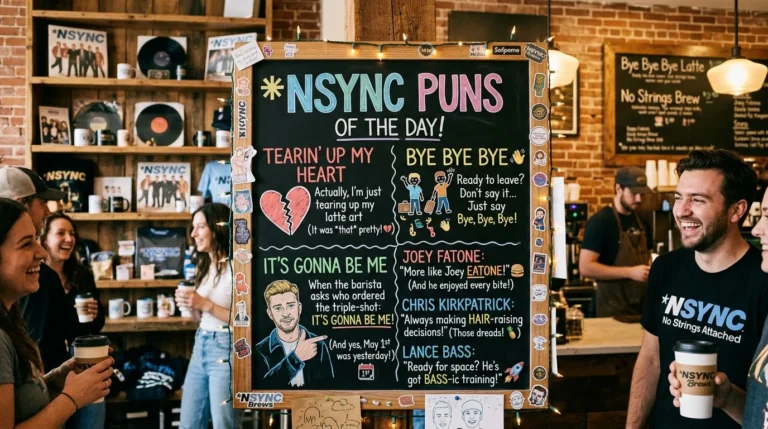 *NSYNC PUNS
OF THE DAY!
TEARIN' UP MY
HEART
Actually, I'm just
tearing up my
latte art
(It was *that* pretty!
BYE BYE BYE
Ready to leave?
Don't say it...
Just say
Bye, Bye, Bye!
IT'S GONNA BE ME
When the barista
asks who ordered
the triple-shot:
IT'S GONNA BE ME!
(And yes, May 1st
was yesterday!)
1st
JOEY FATONE:
"More like Joey EATONE!"
(And he enjoyed every bite!)
CHRIS KIRKPATRICK:
"Always making HAIR-raising
decisions!" (Those dreads!
LANCE BASS:
"Ready for space? He's
got BASS-ic training!"
*NSYNC
Brews
*NSYNC
*NSYNC
*NSYNC
Bye Bye Bye Latte
No Strings Brew
*NSYNC
No Strings Attached
*NSYNC
Brews